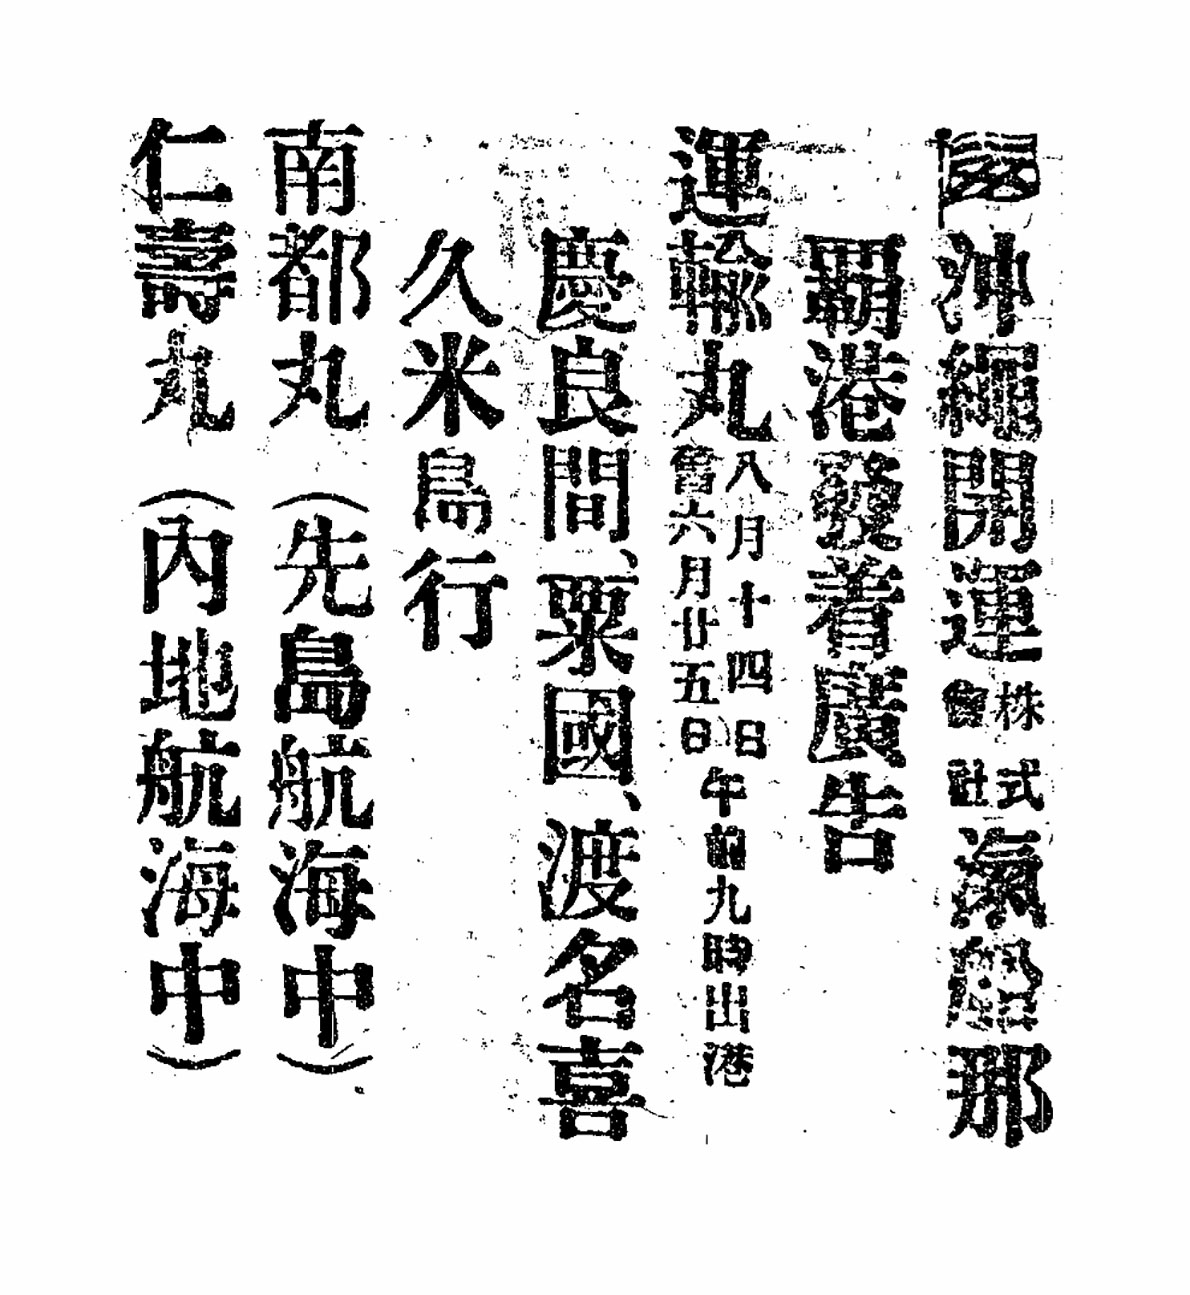 沖繩開運株式會社汽船那
覇港發着廣告
運輸丸八月十四日舊六月廿五日午前九時出港
慶良間、粟國、渡名喜
久米島行
南都丸（先島航海中）
仁壽丸（內地航海中）